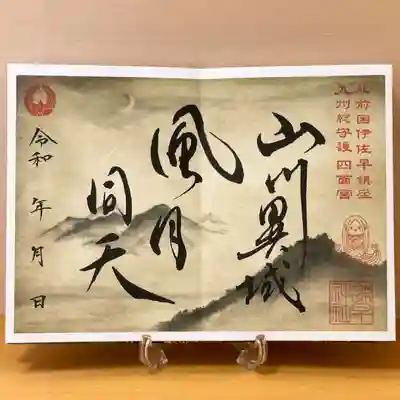 肥前国伊佐早鎮座
九州総守護四面宮
山川異域
風月
同天
令和 年 月 日